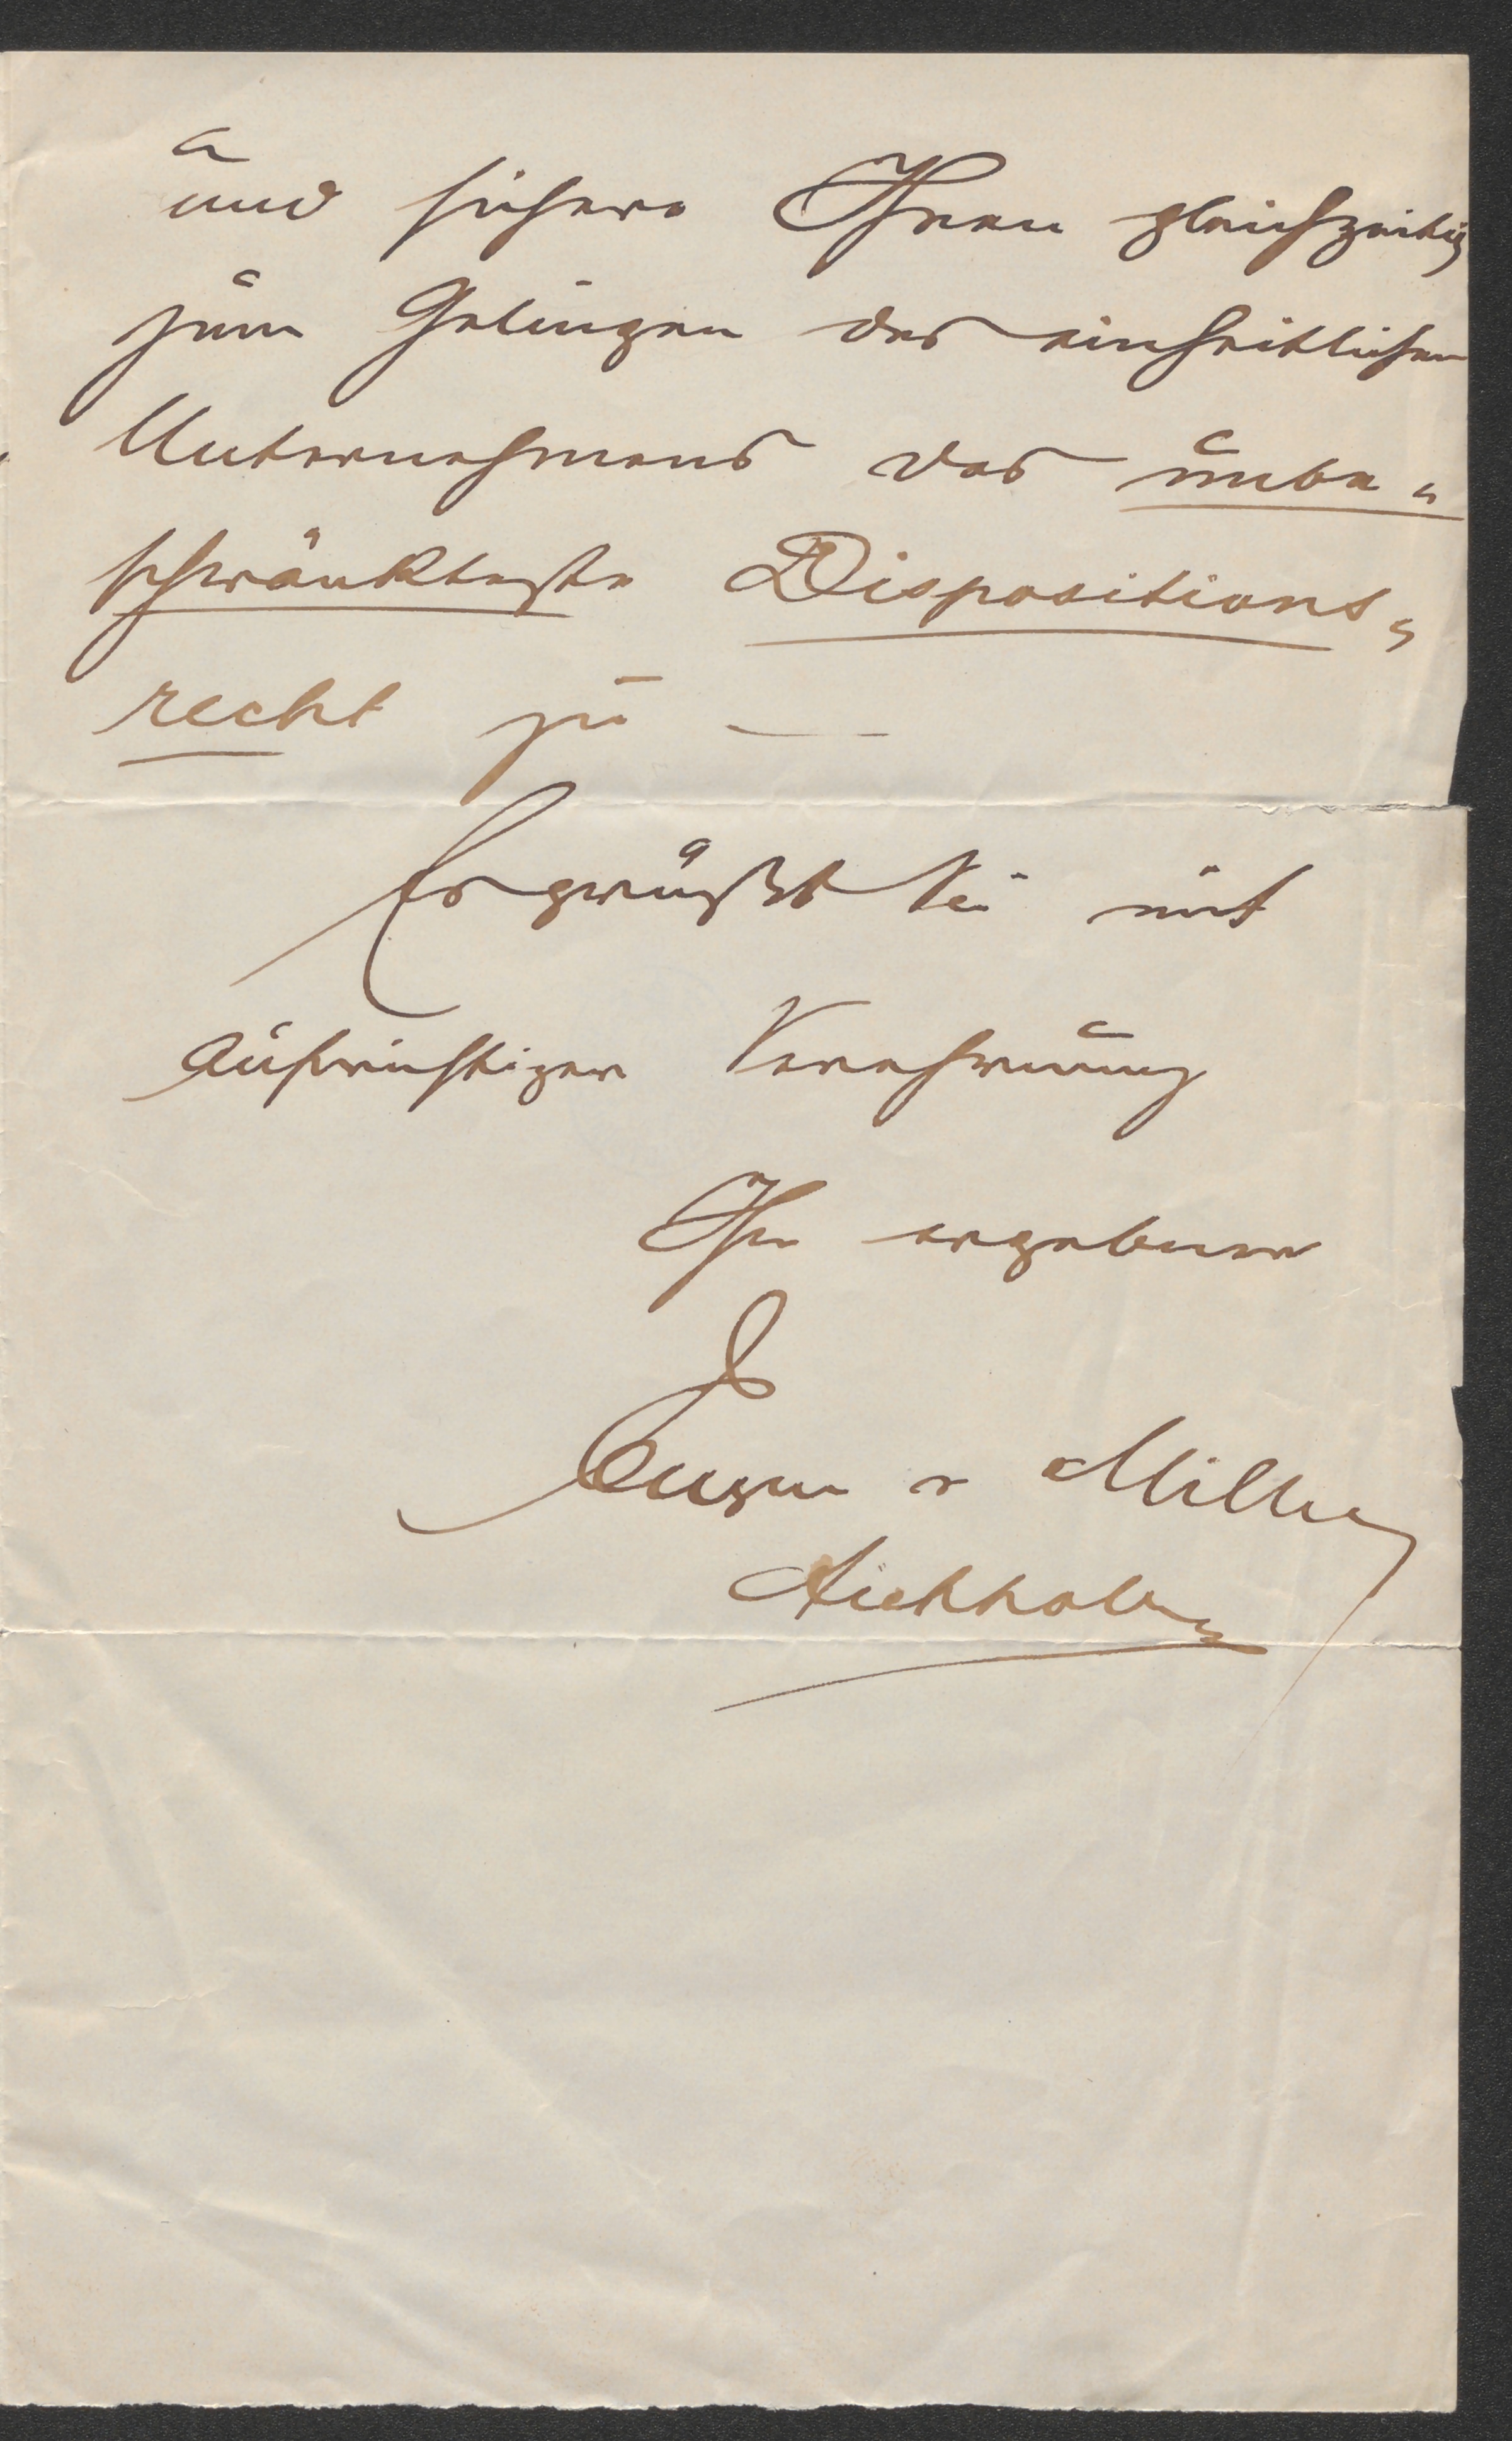 und sichere Ihnen gleichzeitig
zum Gelingen des einheitlichen
Unternehmens das unbe„
schränkteste Dispositions„
recht zu —
Es grüßt Sie mit
aufrichtiger Verehrung
Ihr ergebener
Eugen v Miller
Aichholz